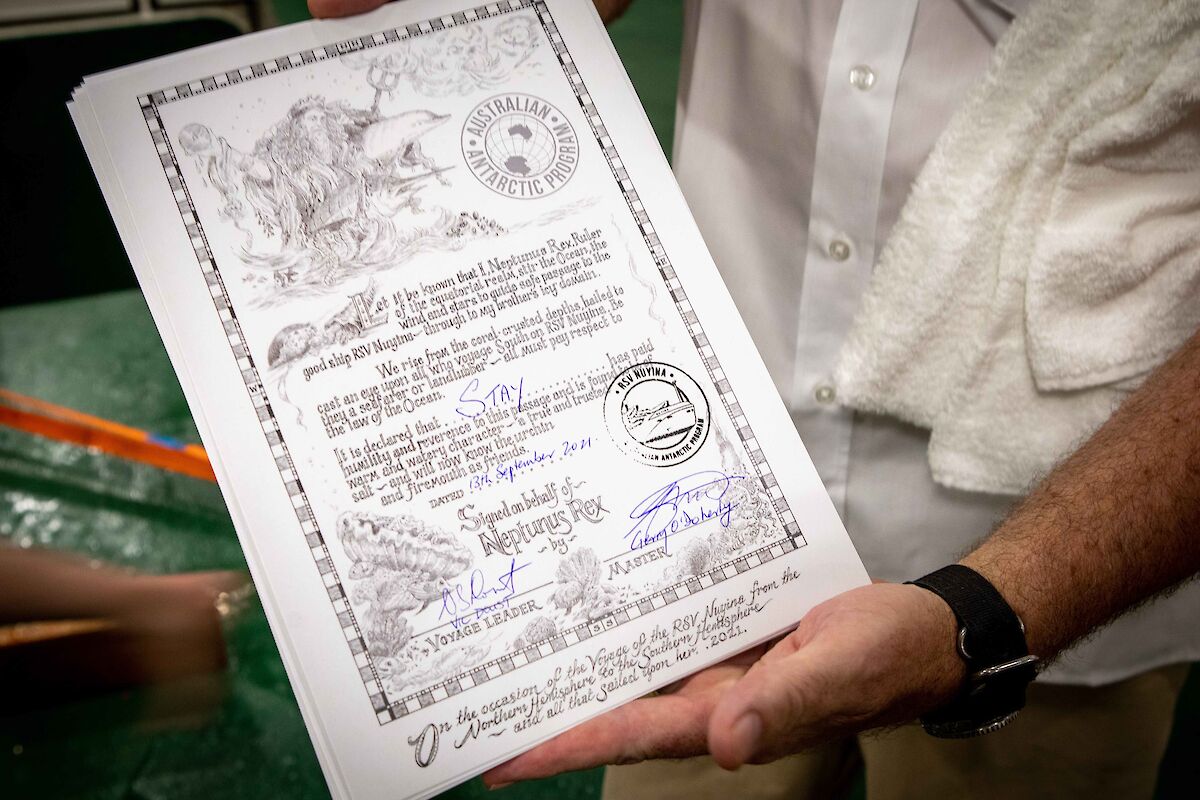 • AUSTRALIAN •
ANTARCTIC PROGRAM
Let it be known that I, Neptunus Rex, Ruler
of the equatorial realm, stir the Ocean, the
wind and stars to guide safe passage to the
good ship RSV Nuyina ~ through to my brother's icy domain.
We rise from the coral-crusted depths, bailed to
cast an eye upon all who voyage South on RSV Nuyina. Be
they a seafarer or landlubber ~ all must pay respect to
the law of the Ocean.
It is declared that STAY has paid
humility and reverence to this passage and is found of
warm and watery character ~ a true and trusted
salt ~ and will now know the urchin
and firemouth as friends.
DATED 13th September 2021.
• RSV NUYINA •
AUSTRALIAN ANTARCTIC PROGRAM
Signed on behalf of ~
Neptunus Rex
~ by ~
Gerry O'Doherty
MASTER
VOYAGE LEADER
On the occasion of the Voyage of the RSV Nuyina from the
Northern Hemisphere to the Southern Hemisphere
~ and all that sailed upon her. . 2021.